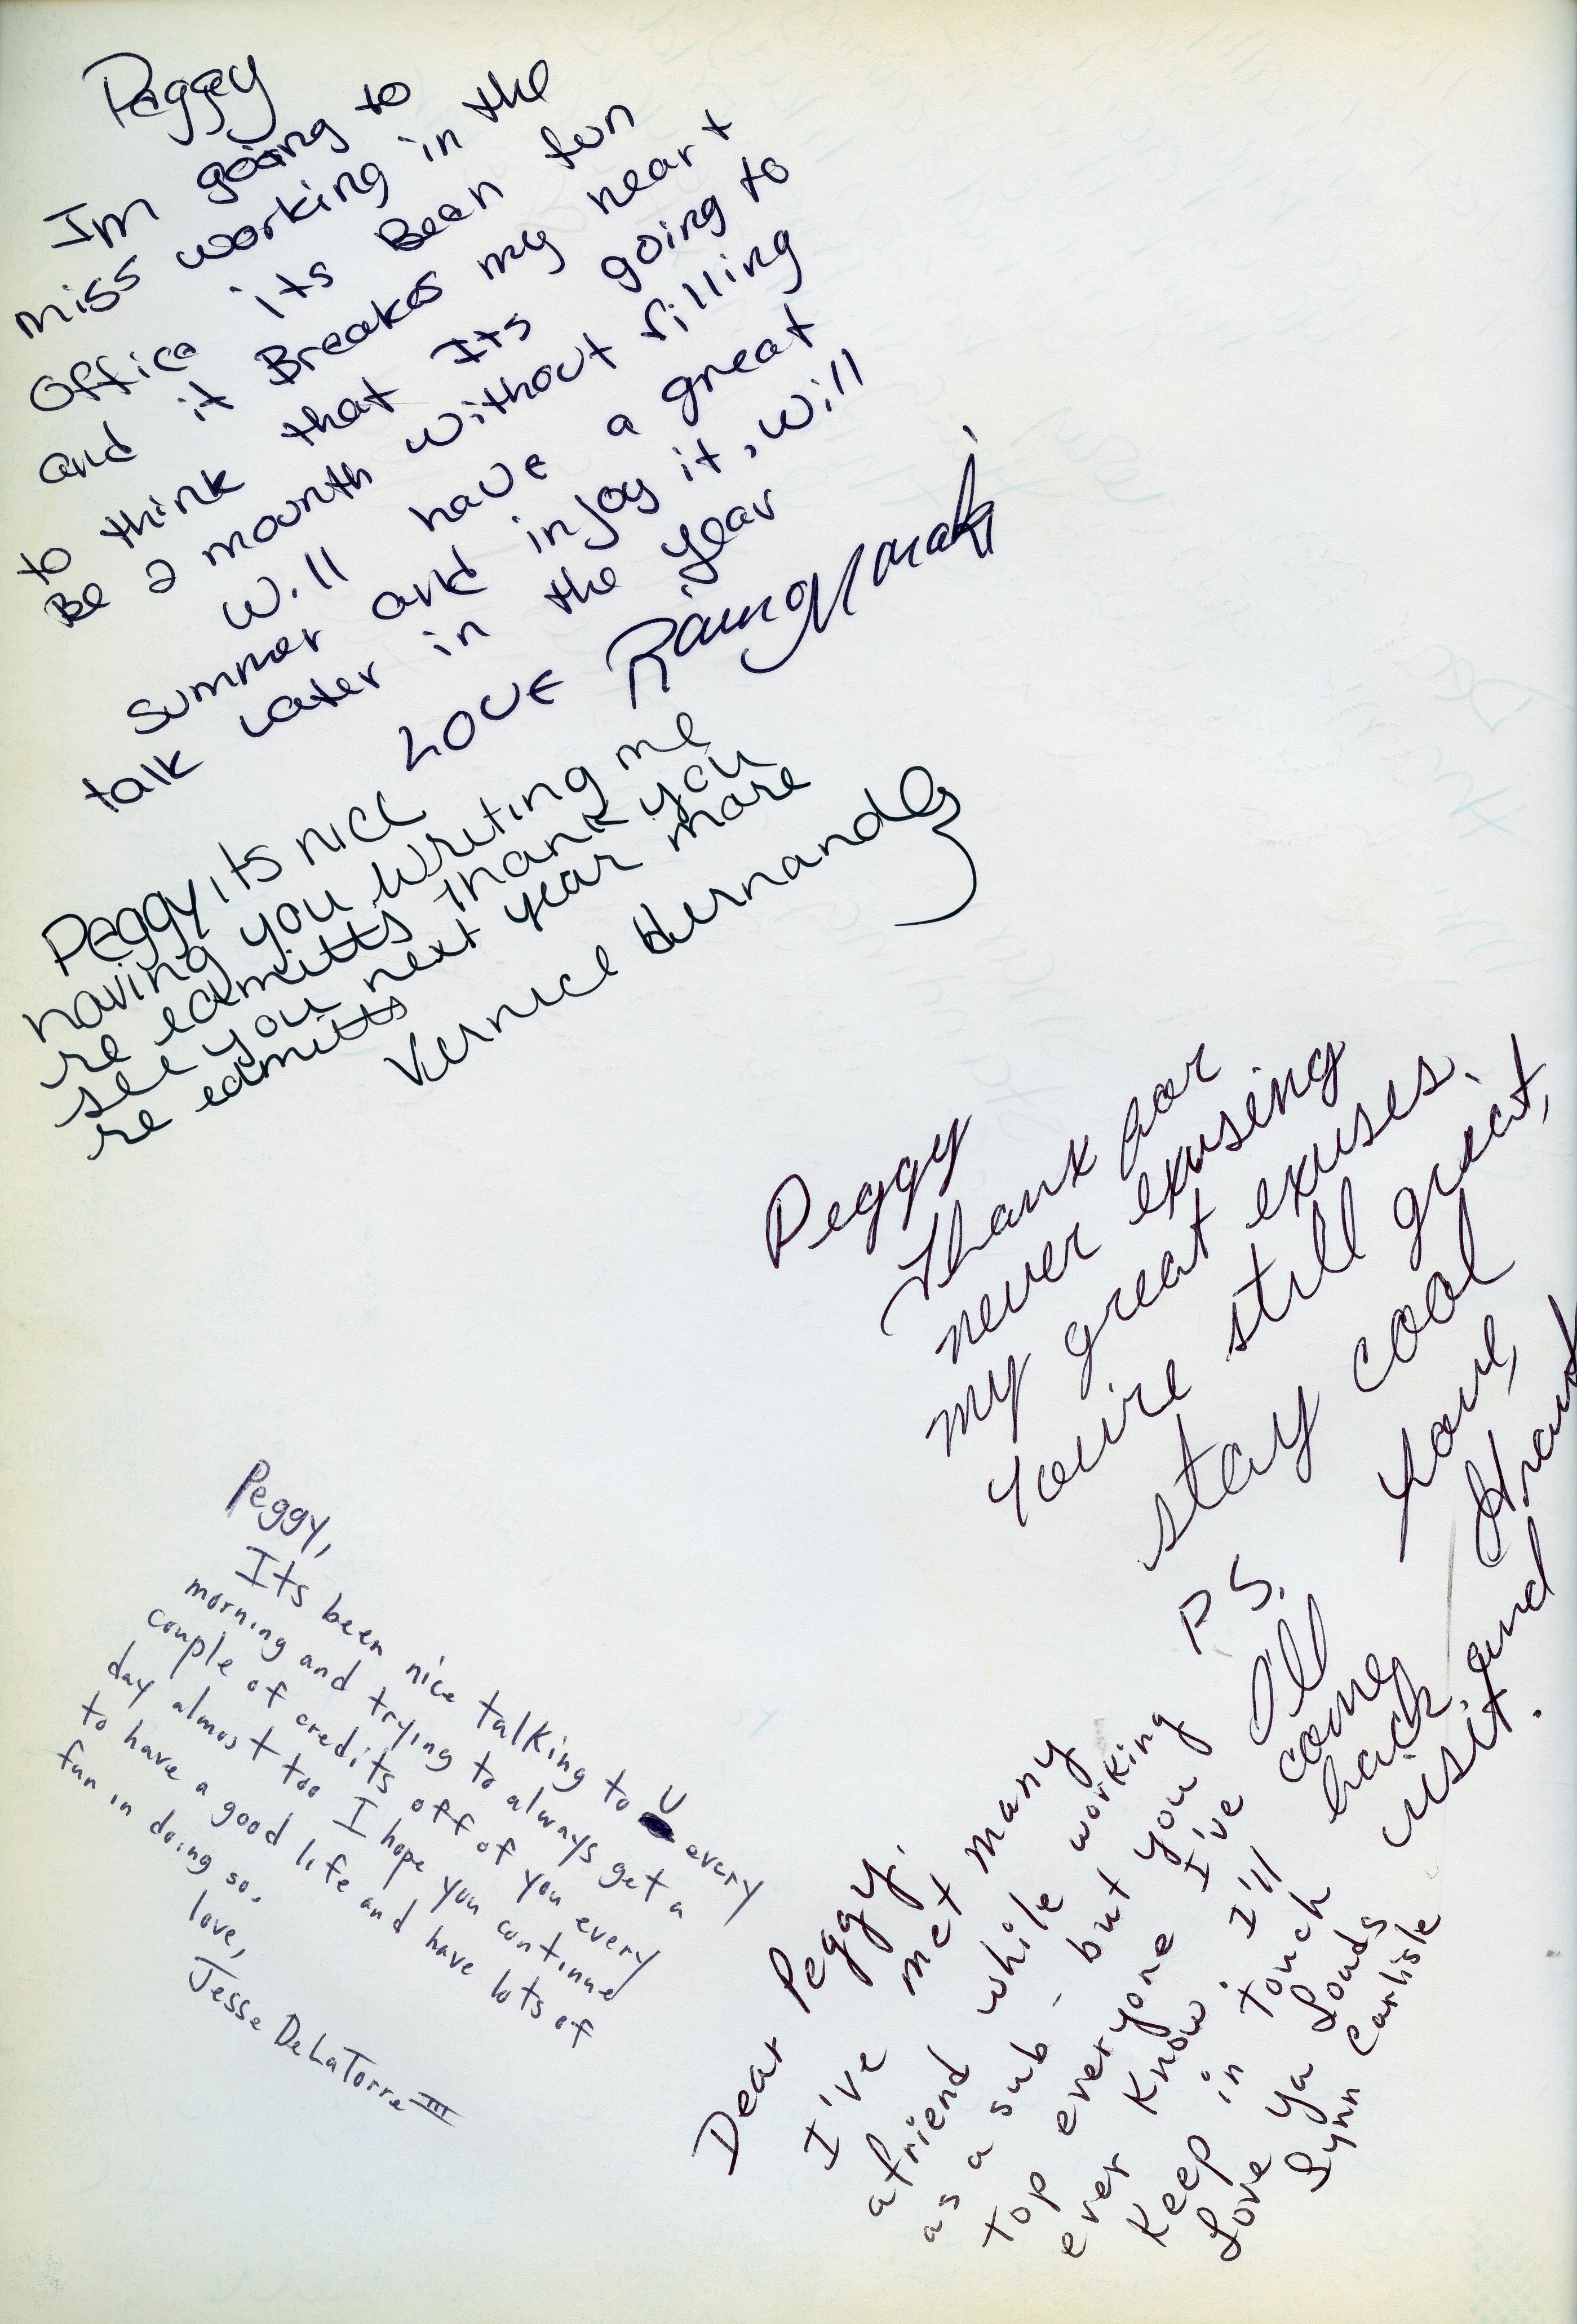 Peggy
Im going to
miss working in the
office its Been fun
and it Breakes my heart
to think that Its going to
Be a mounth without filling
Will have a great
summer and injoy it, Will
talk later in the year
LOVE
Peggy, its nice
having you writing me
re edmitts thank you
see you next year more
re edmitts
Vernice Hernandez
Peggy
Thanx for
never exusing
my great exuses.
You're still great,
stay cool
Love,
P.S.
I'll
come
back and
visit.
Peggy,
Its been nice talking to U every
morning and trying to always get a
couple of credits off of you every
day almost too I hope you continue
to have a good life and have lots of
fun in doing so.
love,
Jesse DeLaTorre III
Dear Peggy,
I've met many
a friend while working
as a sub - but you
top everyone I've
ever know. I'll
Keep in touch
Love Ya Loads
Lynn Carlisle